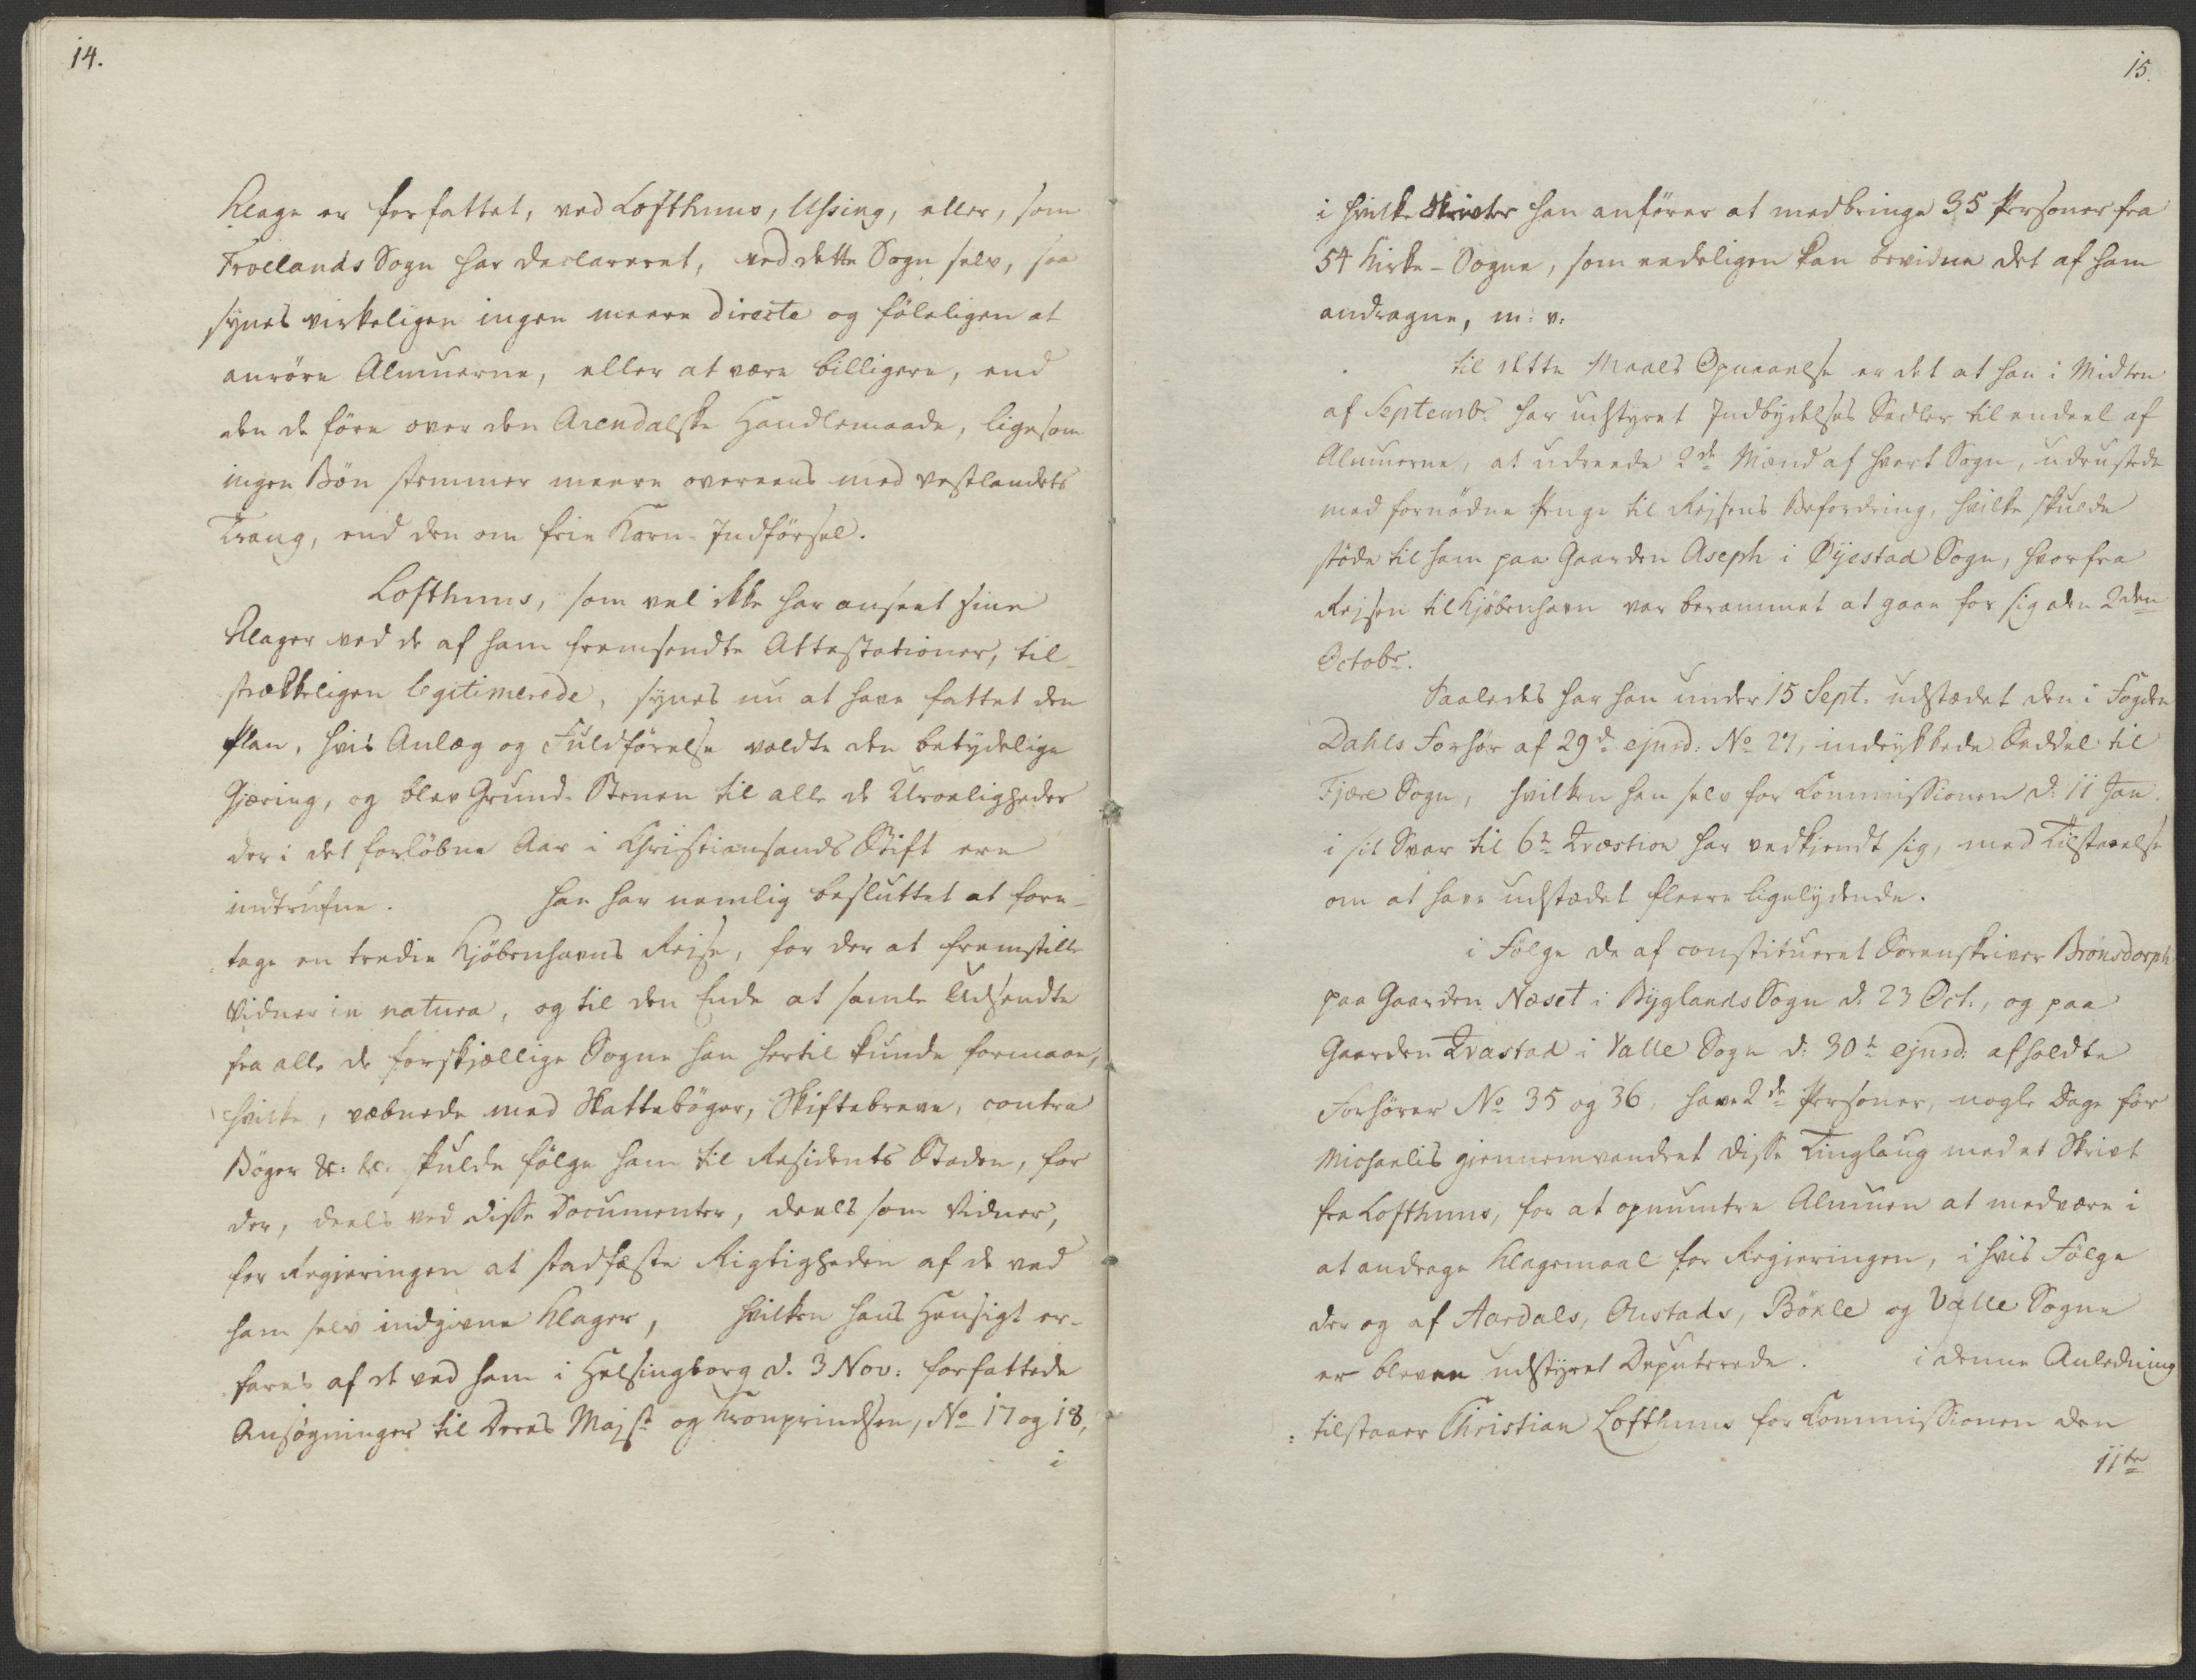 14.
Klage er forfattet, ved Lofthuus, Ussing, eller, som
Froelands Sogn har declareret, ved dette Sogn selv, saa
synes virkeligen ingen meere directe og føleligen at
anröre Almuerne, eller at være billigere, end
den de före over den Arendalske Handlemaade, ligesom
ingen Bön stemmer meere overeens med Vestlandets
Trang, end den om frie Korn-Indförsel.
Lofthuus, som vel ikke har anseet sine
Klager ved de af ham fremsendte Attestationer, til-
strækkeligen legitimerede, synes nu at have fattet den
Plan, hvis Anlæg og Fuldförelse voldte den betydelige
Gjæring, og blev Grund-Stenen til alle de Uroeligheder
der i det forløbne Aar i Christiansands Stift ere
indtrufne. Han har nemlig besluttet at fore-
tage en tredie Kjöbenhavns Rejse, for der at fremstille
Vidner in natura, og til den Ende at samle Udsendte
fra alle de forskjællige Sogne han hertil kunde formaae,
hvilke, væbnede med Skattebøger, Skiftebreve, contra
Böger &c: &c: skulde fölge ham til Residents Staden, for
der, deels ved disse Documenter, deels som Vidner,
for Regjeringen at stadfæste Rigtigheden af de ved
ham selv indgivne Klager, hvilken hans Hensigt er-
fares af de ved ham i Helsingborg d. 3 Nov: forfattede
Ansøgninger til Deres Majst. og Kronprindsen, No 17 og 18,
i
15.
i hvilke Skrivter han anförer at medbringe 35 Personer fra
54 Kirke-Sogne, som eedeligen kan bevidne det af ham
andragne, m: v:
Til dette Maals Opnaaelse er det at han i Midten
af Septembr. har udstyret Indbydelses Sedler til endeel af
Almuerne, at udreede 2de Mænd af hvert Sogn, udrustede
med fornødne Penge til Rejsens Befordring, hvilke skulde
støde til ham paa Gaarden Aseph i Øyestad Sogn, hvorfra
Rejsen til Kjöbenhavn var berammet at gaae for sig den 2den
Octobr.
Saaledes har han under 15 Sept. udstædet den i Fogden
Dahls Forhör af 29d. ejusd: No 27, indrykkede Seddel til
Fjære Sogn, hvilken han selv for Commissionen d: 11 Jan.
i sit Svar til 6te Qvæstion har vedkjendt sig, med Tilstaaelse
om at have udstædet fleere ligelydende.
i Fölge de af constitueret Sorenskriver Brönsdorph
paa Gaarden Næset i Byglands Sogn d: 23 Oct., og paa
Gaarden Qvastad i Valle Sogn d: 30t ejusd: afholdte
Forhörer No 35 og 36, have 2de Personer, nogle Dage för
Michaelis gjennemvandret disse Tinglaug med et Skrivt
fra Lofthuus, for at opmuntre Almuen at medvære i
at andrage Klagemaal for Regieringen, i hvis Fölge
der og af Aardals, Oustads, Böxle og Valle Sogne
er bleven udstyret Deputerede. i denne Anledning
tilstaaer Christian Lofthuus for Commissionen den
11te